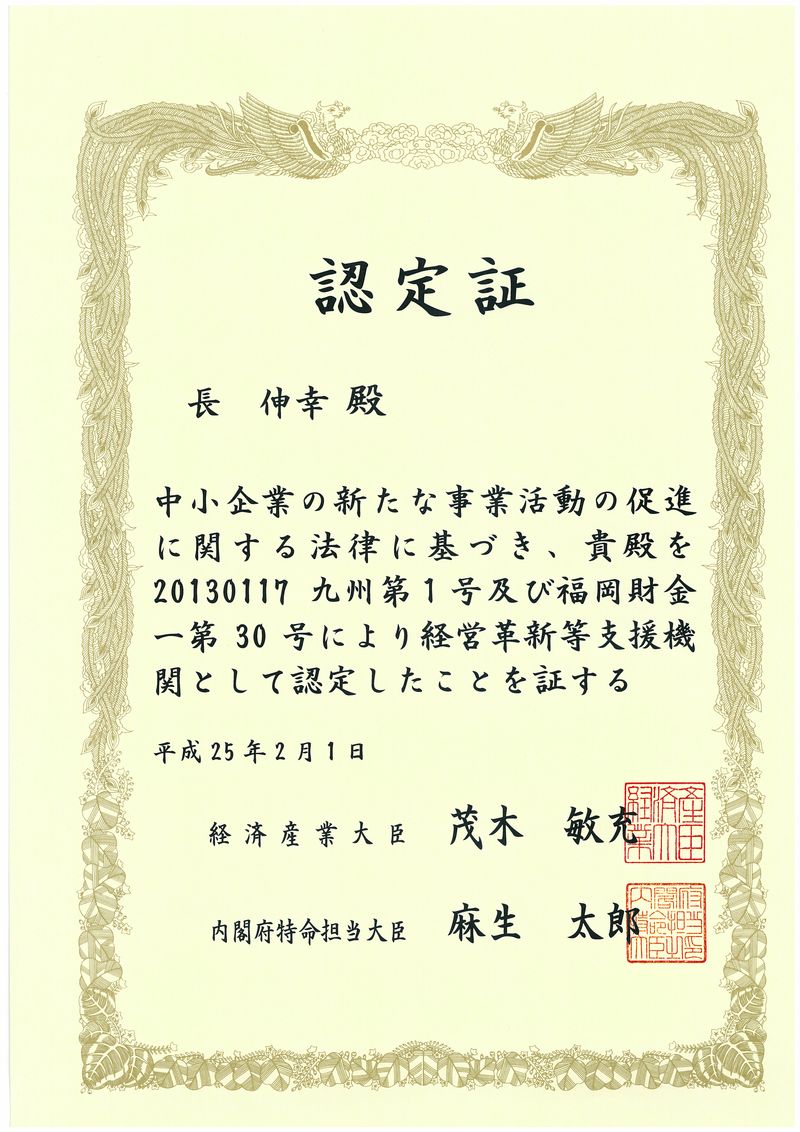 認定証
長　伸幸 殿
中小企業の新たな事業活動の促進
に関する法律に基づき、貴殿を
20130117 九州第1号及び福岡財金
一第 30 号により経営革新等支援機
関として認定したことを証する
平成 25 年 2 月 1 日
経済産業大臣　茂木　敏充
内閣府特命担当大臣　麻生　太郎